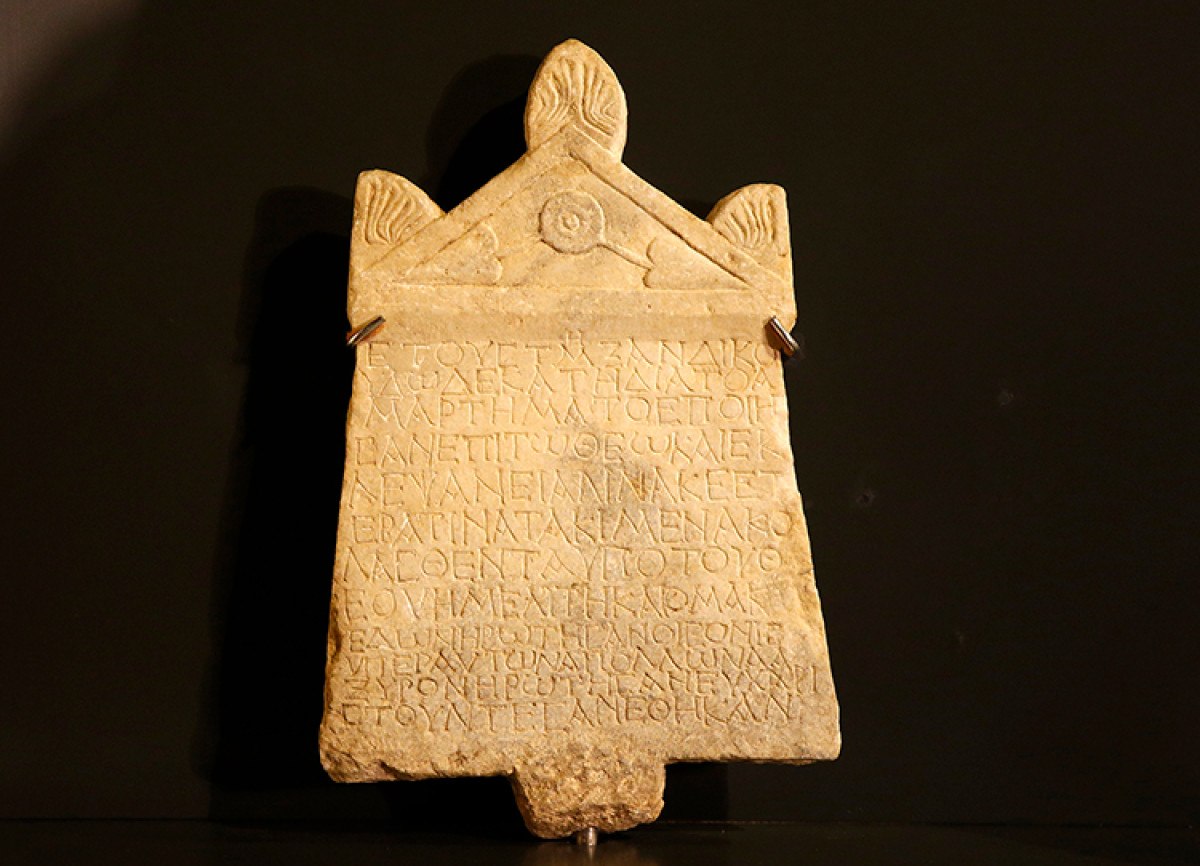 ΕΤΟΥCΤΜΗΞΑΝΔΙΚΟ
ΥΔΩΔΕΚΑΤΗΔΙΑΤΟΑ
ΜΑΡΤΗΜΑΤΟΕΠΟΙΗ
CΑΝΕΠΙΤΩΘΕΩΚΑΙΕΚ
ΛΕΨΑΝΕΙΑΠΙΝΑΚΕΕΤ
ΕΡΑΤΙΝΑΤΑΚΙΜΕΝΑΚΟ
ΛΑCΘΕΝΤΑΥΠΟΤΟΥΘ
ΕΟΥΗΜΕΛΙΤΗΚΑΙΟΜΑΚ
ΕΔΩΝΗΡΩΤΗCΑΝΟΙΓΟΝΙC
ΥΠΕΡΑΥΤΩΝΑΠΟΛΛΩΝΑΑ
ΞΥΡΟΝΗΡΩΤΗCΑΝΕΥΧΑΡΙ
CΤΟΥΝΤΕCΑΝΕΘΗΚΑΝ